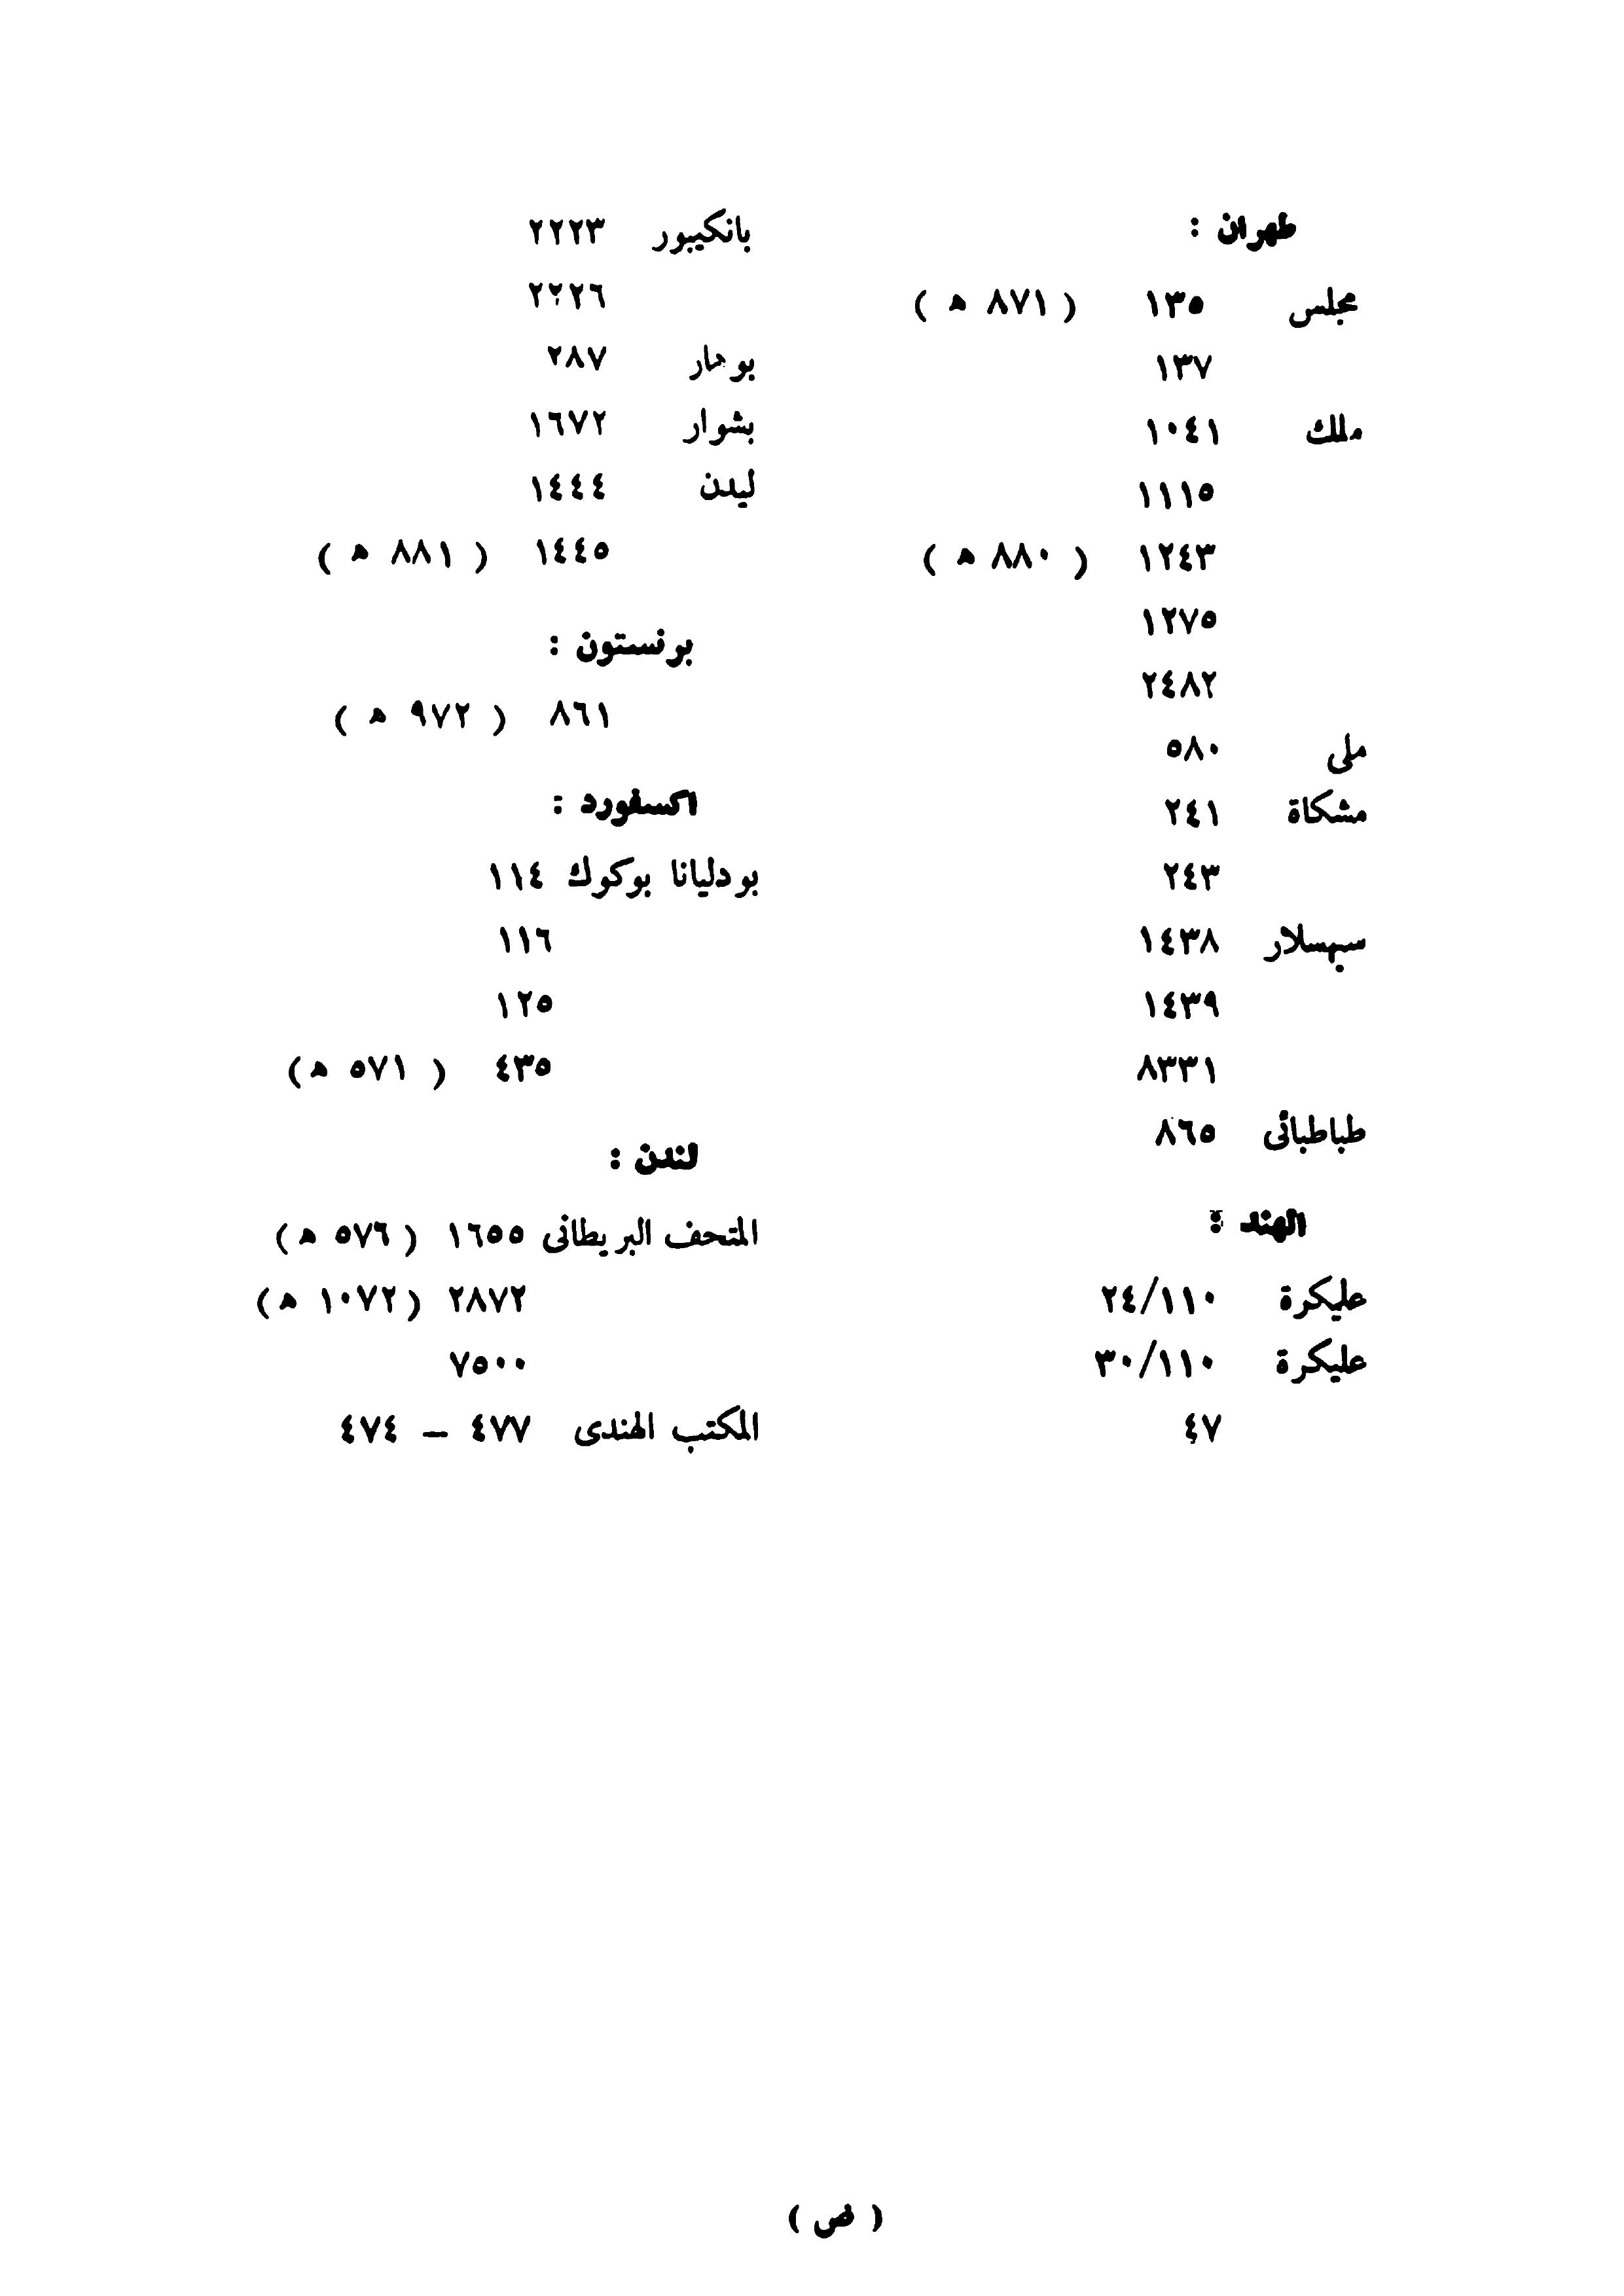 طهران :
مجلس ١٣٥ ( ٨٧١ ه )
١٣٧
ملك ١٠٤١
١١١٥
١٢٤٣ ( ٨٨٠ ه )
١٢٧٥
٢٤٨٢
ملى ٥٨٠
مشكاة ٢٤١
٢٤٣
سپهسلار ١٤٣٨
١٤٣٩
٨٣٣١
طباطبائى ٨٦٥
الهند :
عليكرة ٢٤/١١٠
عليكرة ٣٠/١١٠
٤٧
بانكيبور ٢٢٢٣
٢٢٢٦
بوهار ٢٨٧
بشوار ١٦٧٢
ليدن ١٤٤٤
١٤٤٥ ( ٨٨١ ه )
برنستون :
٨٦١ ( ٩٧٢ ه )
اكسفورد :
بودليانا بوكوك ١١٤
١١٦
١٢٥
٤٣٥ ( ٥٧١ ه )
لندن :
المتحف البريطانى ١٦٥٥ ( ٥٧٦ ه )
٢٨٧٢ ( ١٠٧٢ ه )
٧٥٠٠
المكتب الهندى ٤٧٧ – ٤٧٤
( ض )